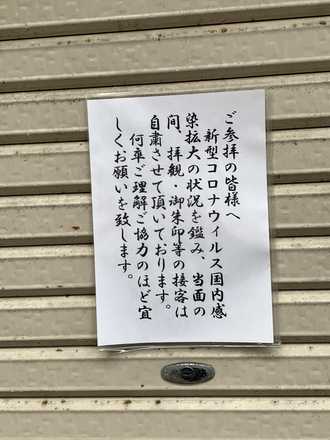 ご参拝の皆様へ
新型コロナウイルス国内感
染拡大の状況を鑑み、当面の
間、拝観・御朱印等の接客は
自粛させて頂いております。
何卒ご理解ご協力のほど宜
しくお願いを致します。